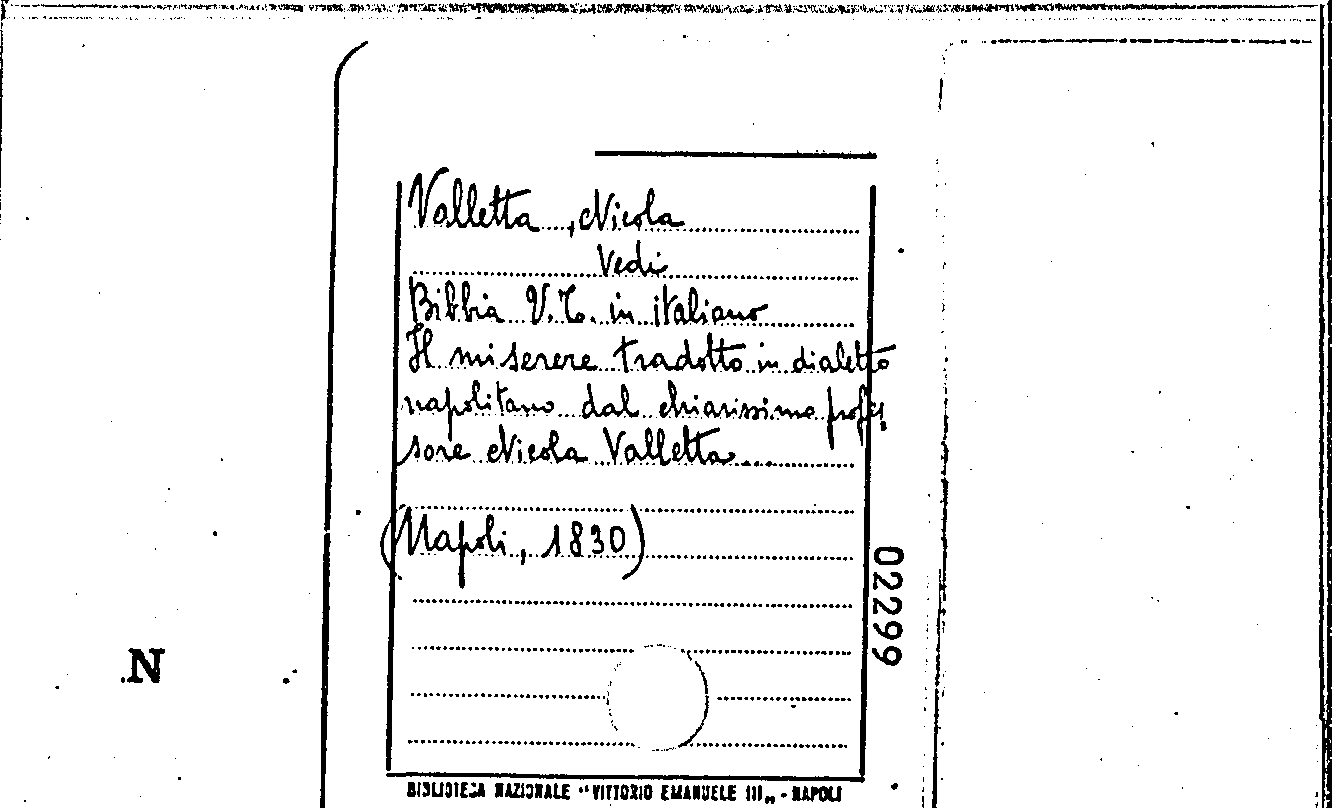 Valletta, Nicola
Vedi
Bibbia V.T. in italiano
Il miserere tradotto in dialetto
napolitano dal chiarissimo profes
sore Nicola Valletta...
(Napoli, 1830)
02299
N
BIBLIOTECA NAZIONALE "VITTORIO EMANUELE III„ - NAPOLI